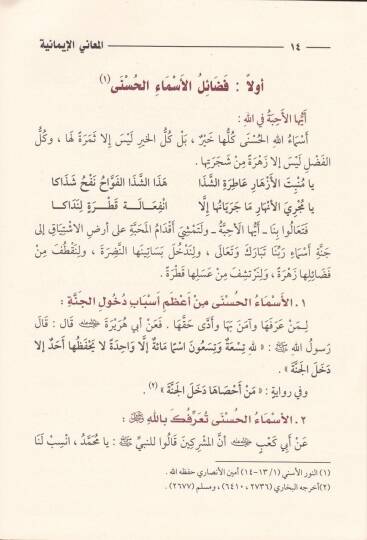 ١٤ المعاني الإيمانية
أولاً : فَضَائِلُ الأَسْمَاءِ الحُسْنَى (١)
أَيُّهَا الأَحِبَّةُ فِي اللهِ :
أَسْمَاءُ اللهِ الحُسْنَى كُلُّهَا خَيْرٌ ، بَلْ كُلُّ الخيرِ لَيْسَ إلا ثَمَرَةً لَهَا ، وكُلُّ
الفَضْلِ لَيْسَ إلا زَهْرَةً مِنْ شَجَرَتِهَا .
يا مُنْبِتَ الأَزْهَارِ عَاطِرَةَ الشَّذَا هَذَا الشَّذَا الفَوَّاحُ نَفْحُ شَذَاكا
يا مُجْرِيَ الأنْهَارِ مَا جَرَيَانُهَا إلَّا انْفِعَالَةُ قَطْرَةٍ لِنَدَاكَا
فَتَعَالَوا بِنَا ـ أَيُّهَا الأَحِبَّةُ ـ ولنمْشِي أَقْدَامُ المَحَبَّةِ على أرضِ الاشْتِيَاقِ إلى
جَنَّةِ أَسْمَاءِ رَبِّنَا تَبَارَكَ وَتَعَالَى ، ولنَدْخُلَ بَسَاتِينَهَا النَّضِرَةَ ، ولنَقْطُفَ مِنْ
فَضَائِلِهَا زَهْرَةً ، وَلنَرْتَشِفَ مِنْ عَسَلِهَا قَطْرَةً .
١ . الأَسْمَاءُ الحُسْنَى مِنْ أَعْظَمِ أَسبَابِ دُخُولِ الجنَّةِ :
لِـمَنْ عَرَفَهَا وَآمَنَ بِهَا وأَدَّى حَقَّهَا . فَعَنْ أَبي هُرَيْرَةَ رضي الله عنه قَالَ : قَالَ
رَسولُ اللهِ ﷺ : « لله تِسْعَةٌ وَتِسْعُونَ اسْمًا مَائةٌ إلَّا وَاحِدَةً لا يَحْفَظُهَا أَحَدٌ إلا
دَخَلَ الجَنَّةَ » .
وفي روايةٍ : « مَنْ أَحْصَاهَا دَخَلَ الجَنَّةَ » (٢) .
٢ . الأَسْمَاءُ الحُسْنَى تُعَرِّفُكَ بـاللهِ ﷻ :
عَنْ أُبَي كَعْبٍ رضي الله عنه أَنَّ المُشْرِكِينَ قَالُوا للنبيِّ ﷺ : يا مُحَمَّدُ ، انْسِبْ لَنَا
(١) النور الأسني (١/ ١٣-١٤) أمين الأنصاري حفظه الله .
(٢) أخرجه البخاري (٢٧٣٦ ، ٦٤١٠) ، ومسلم (٢٦٧٧) .